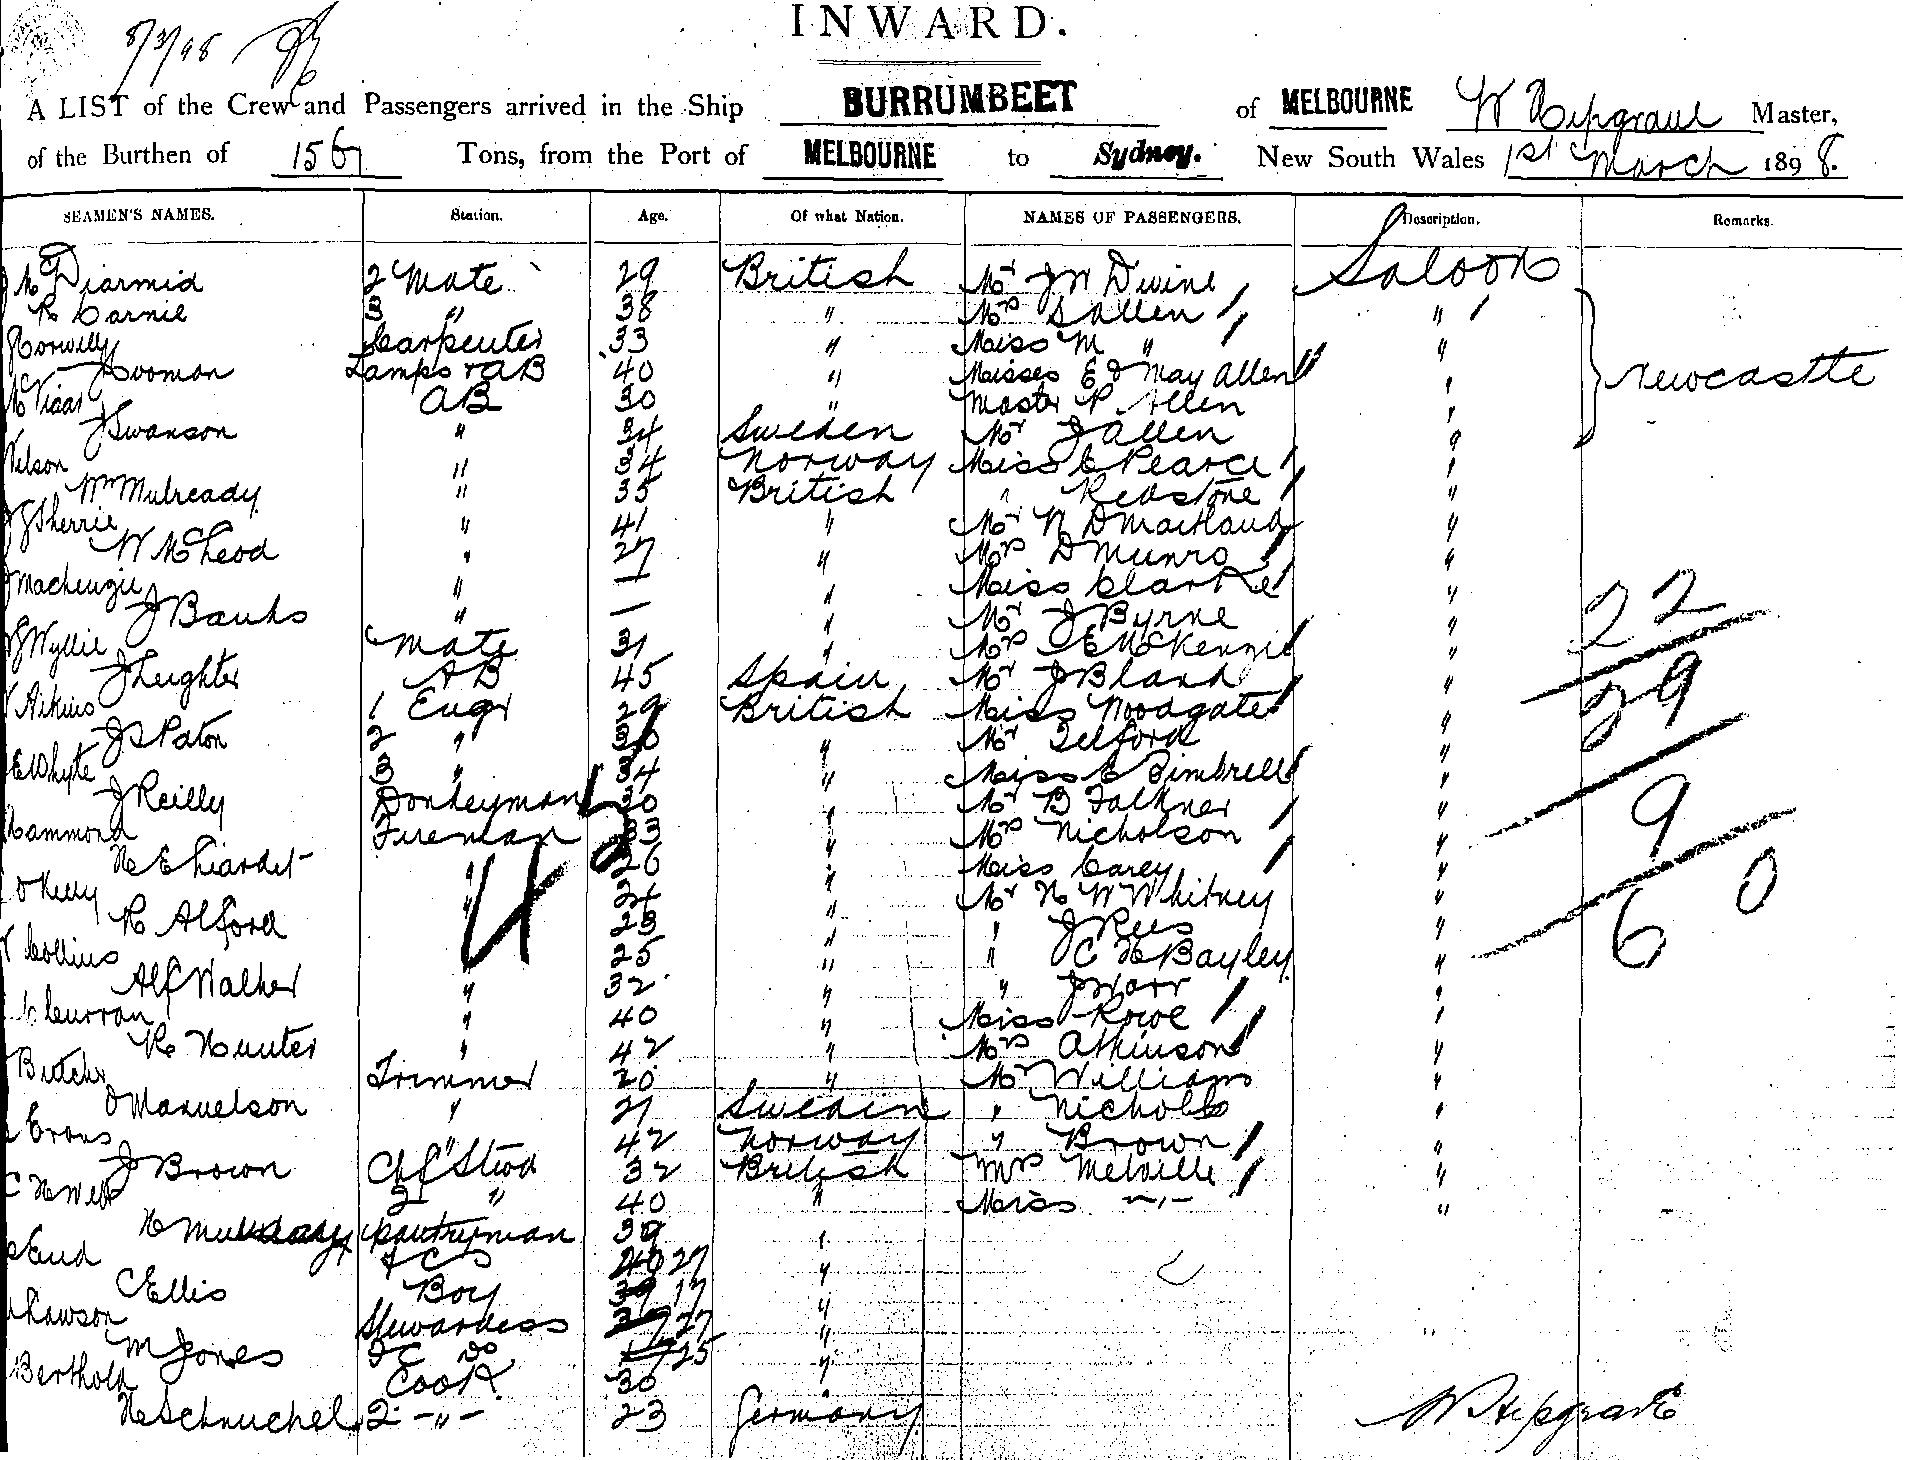 INWARD.
8/3/98
A LIST of the Crew and Passengers arrived in the Ship BURRUMBEET of MELBOURNE W Hipgrave Master,
of the Burthen of 156 Tons, from the Port of MELBOURNE to Sydney. New South Wales 1st March 1898.
SEAMEN'S NAMES. Station. Age. Of what Nation. NAMES OF PASSENGERS. Description. Remarks.
Mc Diarmid 2 Mate 29 British Mr J W Divine Saloon
R Carnie 3 " 38 " Mrs S Allen " Newcastle
Carpenter 33 " Miss M " "
Lamps & AB 40 " Misses E & May Allen "
McVicar AB 30 " Master P Allen "
J Swanson " 34 Sweden Mr J Allen "
Nelson " 34 Norway Miss E Pearce "
Wm Mulready " 35 British " Redstone "
J G Sherrie " 41 " Mr N D Maitland "
W McLeod " 27 " Mrs D Munro "
J Mackenzie " — " Miss Clarke "
J Banks " — " Mr J Byrne " 22
J Wyllie Mate 31 " Mrs E McKenzie "
J Leighter AB 45 Spain Mr J Bland " 29
Aikins 1 Engr 29 British Miss Woodgate "
J S Paton 2 " 30 " Mr Telford "
E Whyte 3 " 34 " Miss E Bimbrell "
J Reilly Donkeyman 30 " Mr B Falkner " 9
Hammond Fireman 33 " Mrs Nicholson "
H E Liardet " 26 " Miss Carey "
O'Kelly " 24 " Mr H W Whitney " 60
R Alford 23 " " J Rees "
Collins 25 " " C H Bayley "
Alf Walker " 32 " " J Warr "
Curran " 40 " Miss Rowe "
R Hunter " 42 " Mrs Atkinson "
Butcher Trimmer 20 " Mr Williams "
O Manuelson " 21 Sweden " Nicholls "
Evans " 42 Norway " Brown "
J Brown Chf Stwd 32 British Mrs Melville "
C H Webb 2 " 40 " Miss —"— "
H Mulready Pantryman 39 "
F C S 27 "
C Ellis Boy 17 "
Lawson Stewardess 27 "
M Jones F C do 25 "
Berthold Cook 30 "
H Schnuchel 2 —"— 23 Germany
W Hipgrave